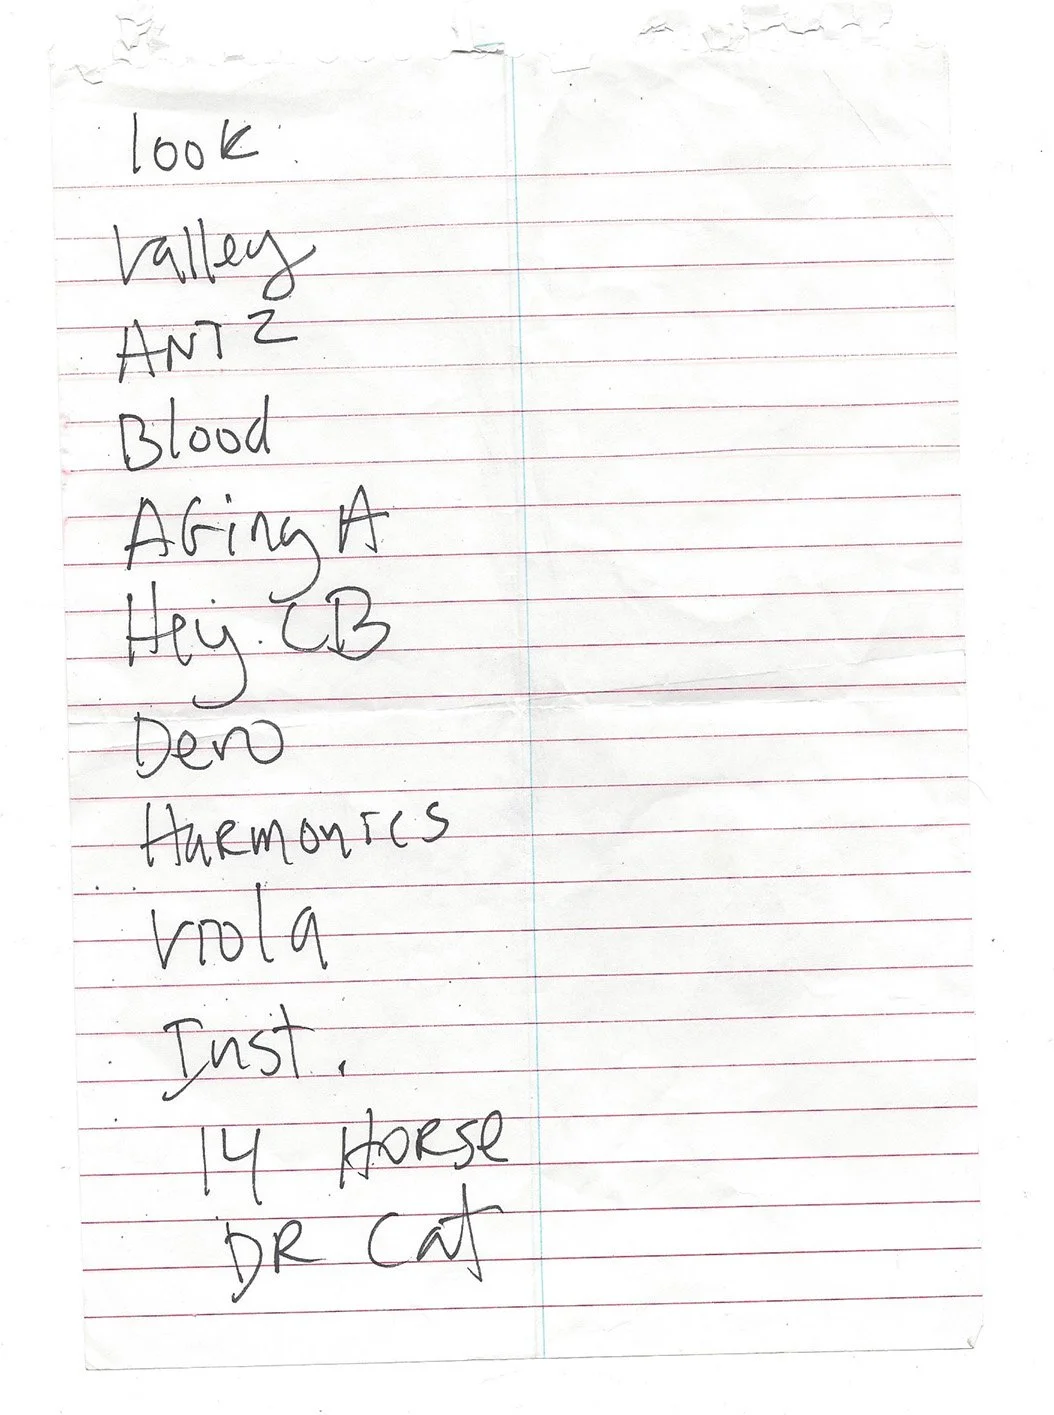 look
Valley
ANT 2
Blood
AGing A
Hey. CB
Dero
HaRmonics
Viola
Inst.
14 HoRse
DR Cat